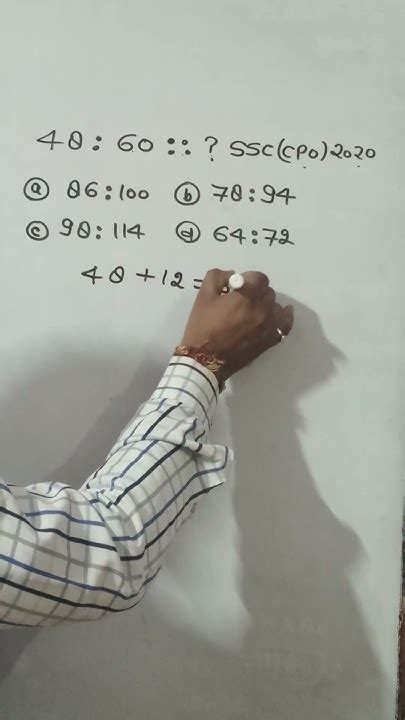 48 : 60 :: ? SSC(CPO)2020
(a) 86:100 (b) 78:94
(c) 98:114 (d) 64:72
48 + 12 =